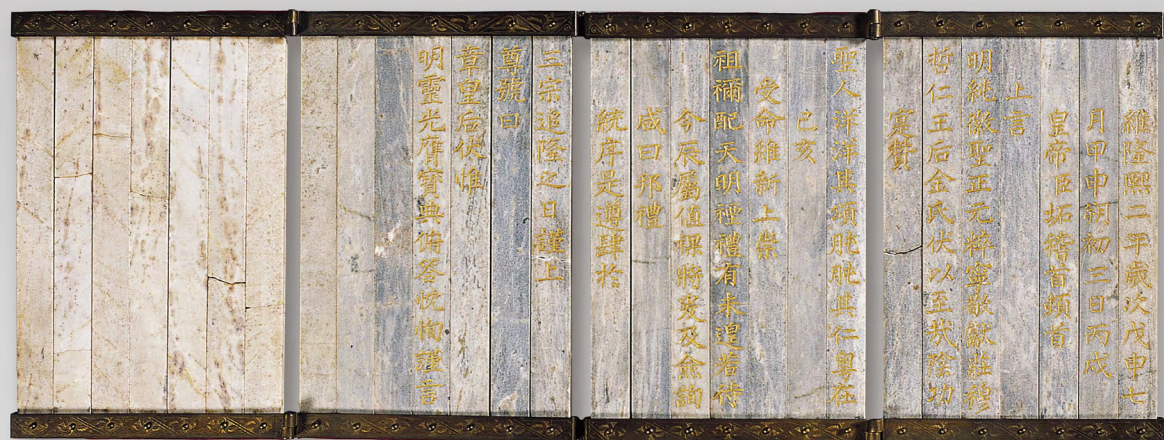 維隆熙二年歲次戊申七
月甲申朔初三日丙戌
皇帝臣坧稽首頓首
上言
明純徽聖正元粹寧敬獻莊穆
哲仁王后金氏伏以至哉陰功
寔贊
聖人洋洋其頌肫肫其仁粤在
己亥
受命維新上崇
祖禰配天明禋禮有未遑若待
今辰屬値祼將爰及僉詢
咸曰邦禮
統序是遵肆於
三宗追隆之日謹上
尊號曰
章皇后伏惟
明靈光膺寶典備答忱恂謹言